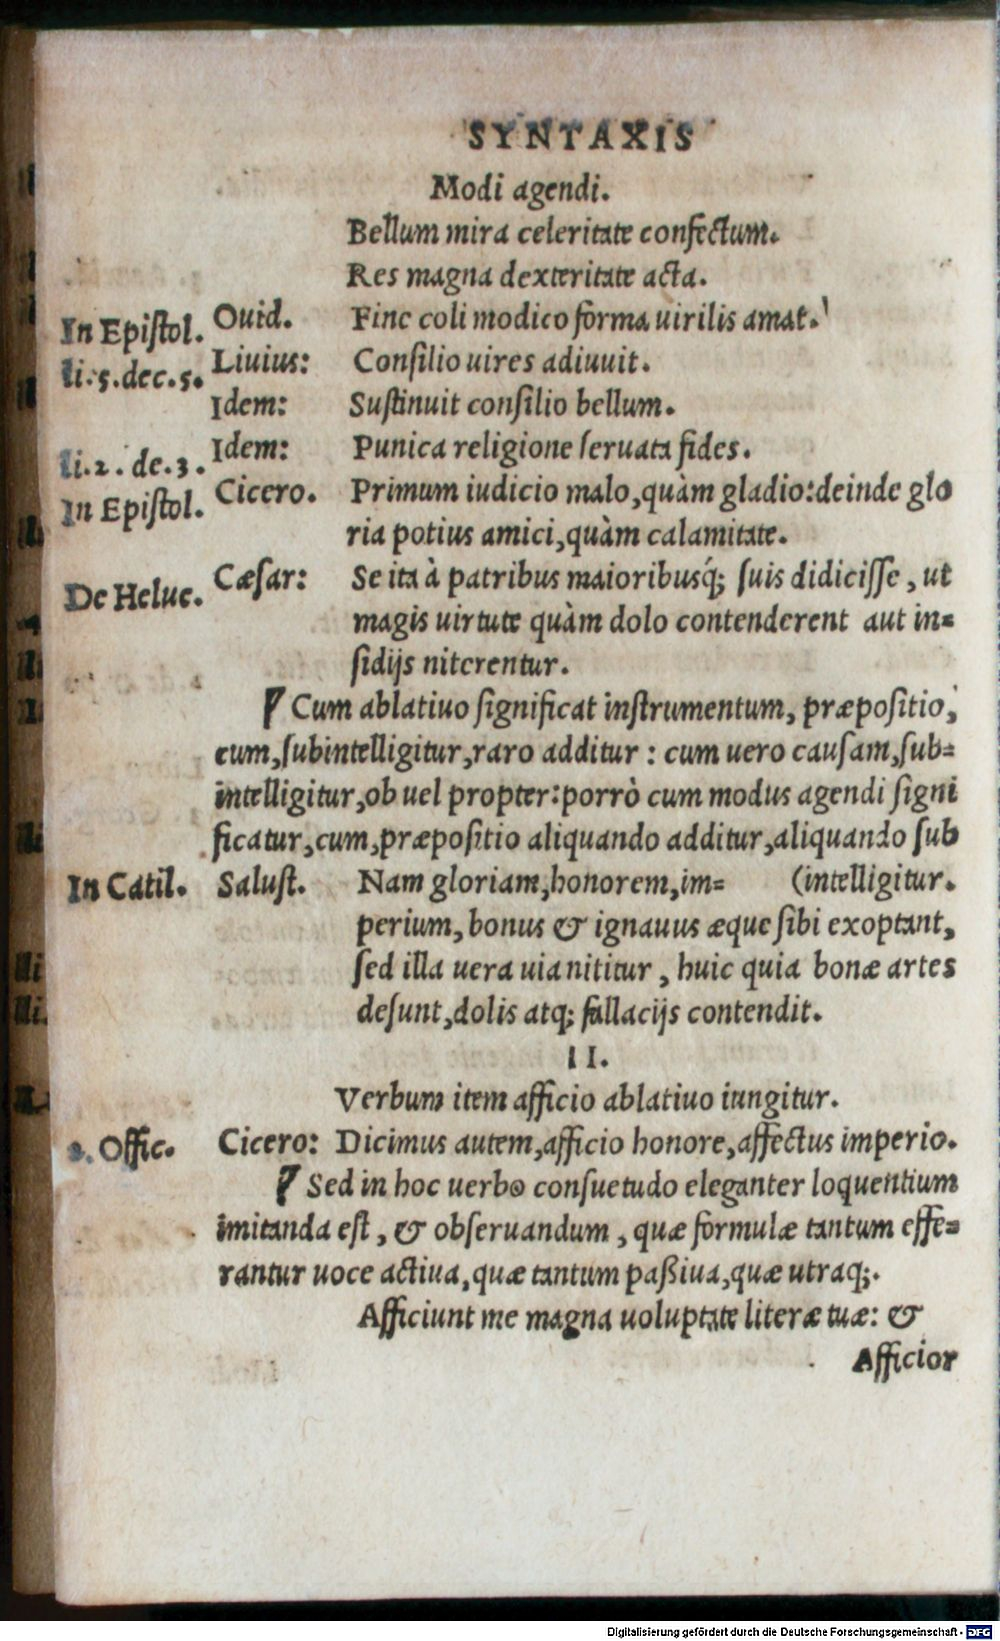 SYNTAXIS
Modi agendi.
Bellum mira celeritate confectum.
Res magna dexteritate acta.
In Epistol. Ouid. Finc coli modico forma uirilis amat.
li.5.dec.5. Liuius: Consilio uires adiuuit.
Idem: Sustinuit consilio bellum.
li.2. de.3. Idem: Punica religione seruata fides.
In Epistol. Cicero. Primum iudicio malo, quàm gladio: deinde glo
ria potius amici, quàm calamitate.
De Heluc. Cæsar: Se ita à patribus maioribusq́; suis didicisse, ut
magis uirtute quàm dolo contenderent aut in=
sidijs niterentur.
¶ Cum ablatiuo significat instrumentum, præpositio,
cum, subintelligitur, raro additur: cum uero causam, sub=
intelligitur, ob uel propter: porrò cum modus agendi signi
ficatur, cum, præpositio aliquando additur, aliquando sub
In Catil. Salust. Nam gloriam, honorem, im= (intelligitur.
perium, bonus & ignauus æque sibi exoptant,
sed illa uera uia nititur, huic quia bonæ artes
desunt, dolis atq; fallacijs contendit.
II.
Verbum item afficio ablatiuo iungitur.
2. Offic. Cicero: Dicimus autem, afficio honore, affectus imperio.
¶ Sed in hoc uerbo consuetudo eleganter loquentium
imitanda est, & obseruandum, quæ formulæ tantum effe=
rantur uoce actiua, quæ tantum paßiua, quæ utraq;.
Afficiunt me magna uoluptate literæ tuæ: &
Afficior
Digitalisierung gefördert durch die Deutsche Forschungsgemeinschaft - DFG